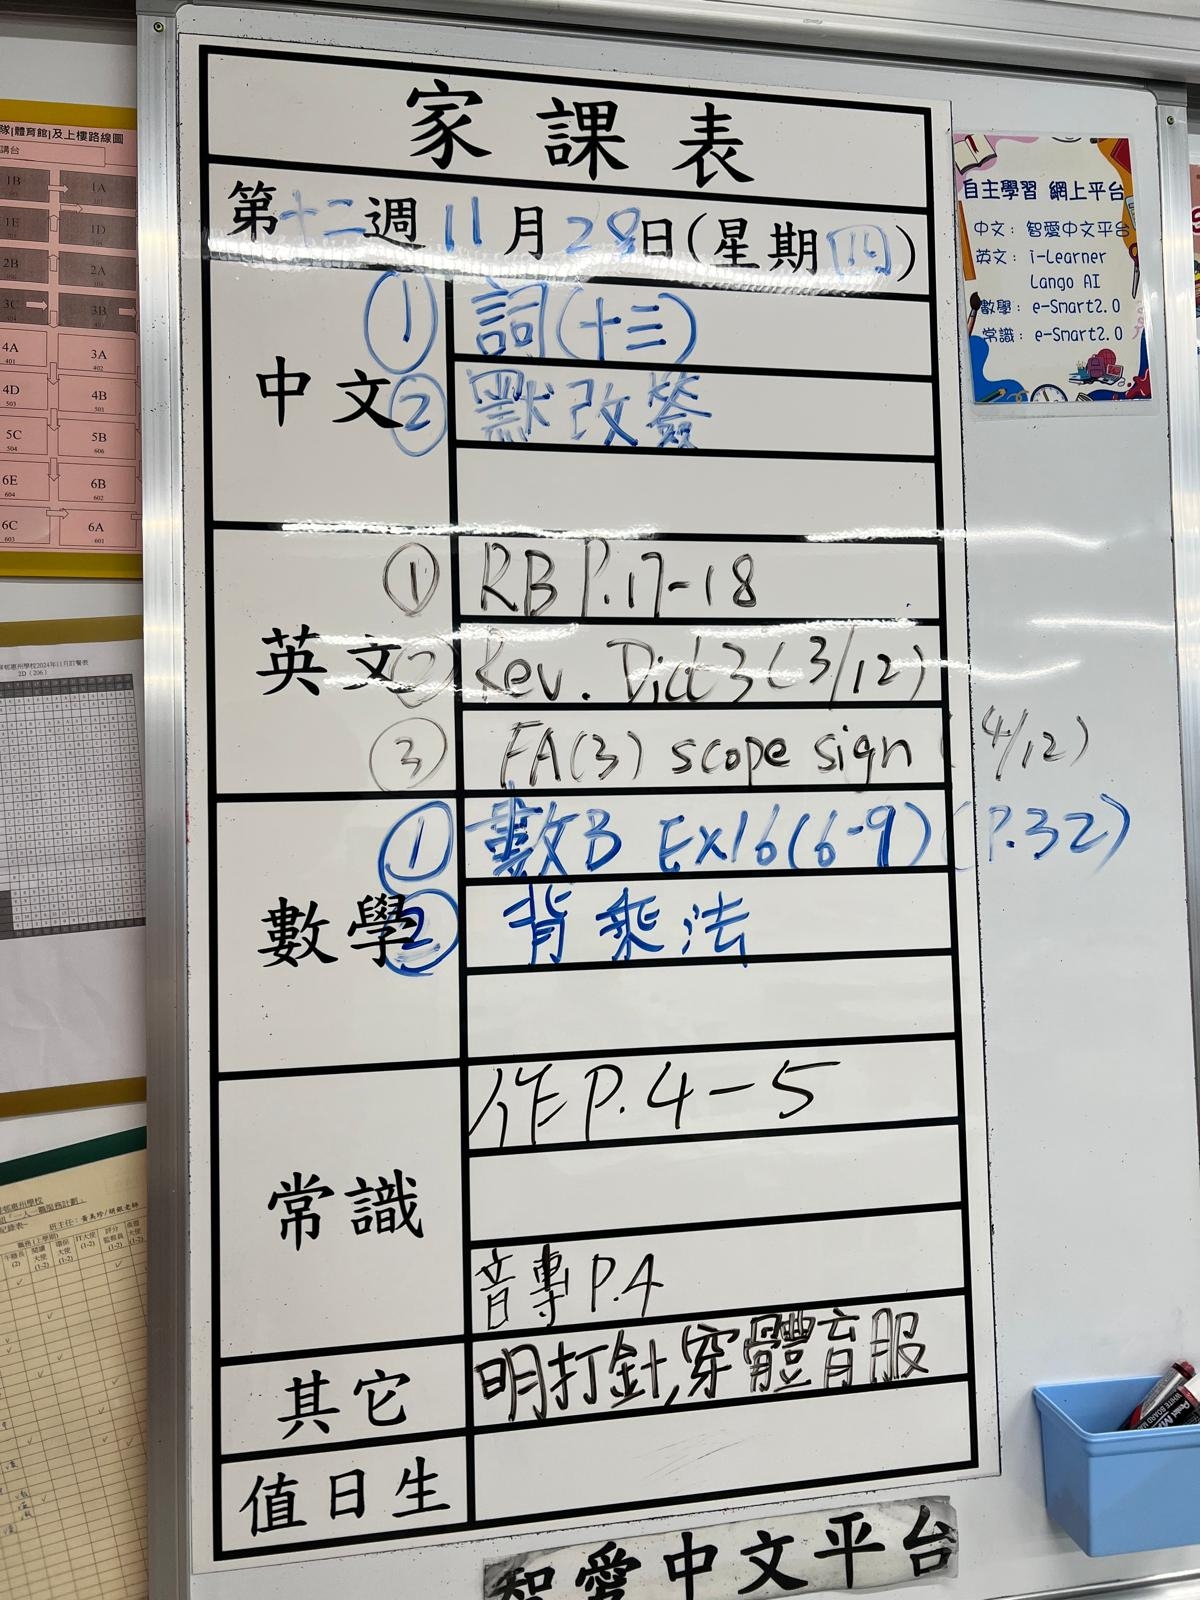 家課表
第十二週11月28日(星期四)
中文
① 詞(十三)
② 默改簽
英文
① RB P.17-18
② Rev. Dict 3 (3/12)
③ FA(3) scope sign (4/12)
數學
① 數B Ex16(6-9) (P.32)
② 背乘法
常識
作P.4-5
音專P.4
其它
明打針,穿體育服
值日生
智愛中文平台
自主學習 網上平台
中文: 智愛中文平台
英文: i-Learner
Lango AI
數學: e-Smart2.0
常識: e-Smart2.0
隊[體育館]及上樓路線圖
講台
1B
1A
1E
1D
2B
2A
3C
3B
4A
401
3A
402
4D
503
4B
501
5C
504
5B
606
6E
604
6B
602
6C
603
6A
601
惠州學校2024年11月訂餐表
2D (206)
惠州學校
「一人一職服務計劃」
記錄表-
職務(上學期)